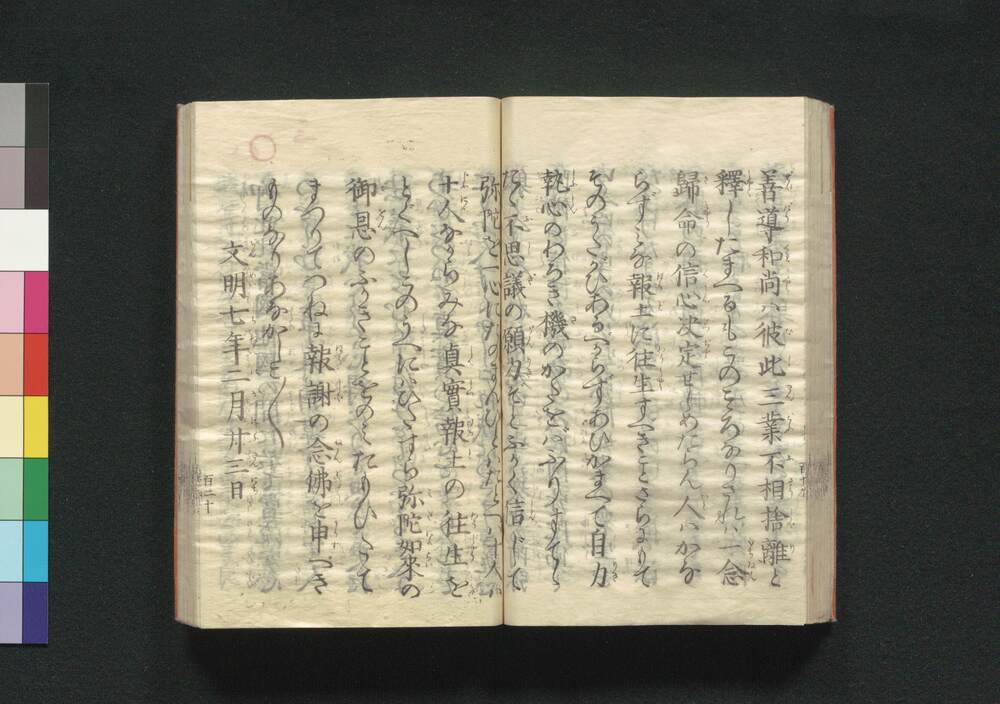 善導和尚ハ彼此三業不相捨離と
釋したまへるもこのこゝろなりされハ一念
歸命の信心决定せしめたらん人ハかな
らずミな報土に往生すべきことさらにもて
そのうたがひあるべからずあひかまへて自力
執心のわろき機のかたをバふりすてゝ
たゝ不思議の願力ぞとふかく信じて
弥陀を一心にたのまんひとハたとへハ十人ハ
十人なからみな眞實報土の往生を
とくへしこのうへにハひたすら弥陀如來の
御恩のふかきことをのミおもひたて
まつりてつねに報謝の念佛を申へき
ものなりあなかしこ〱
文明七年二月廿三日
百二十